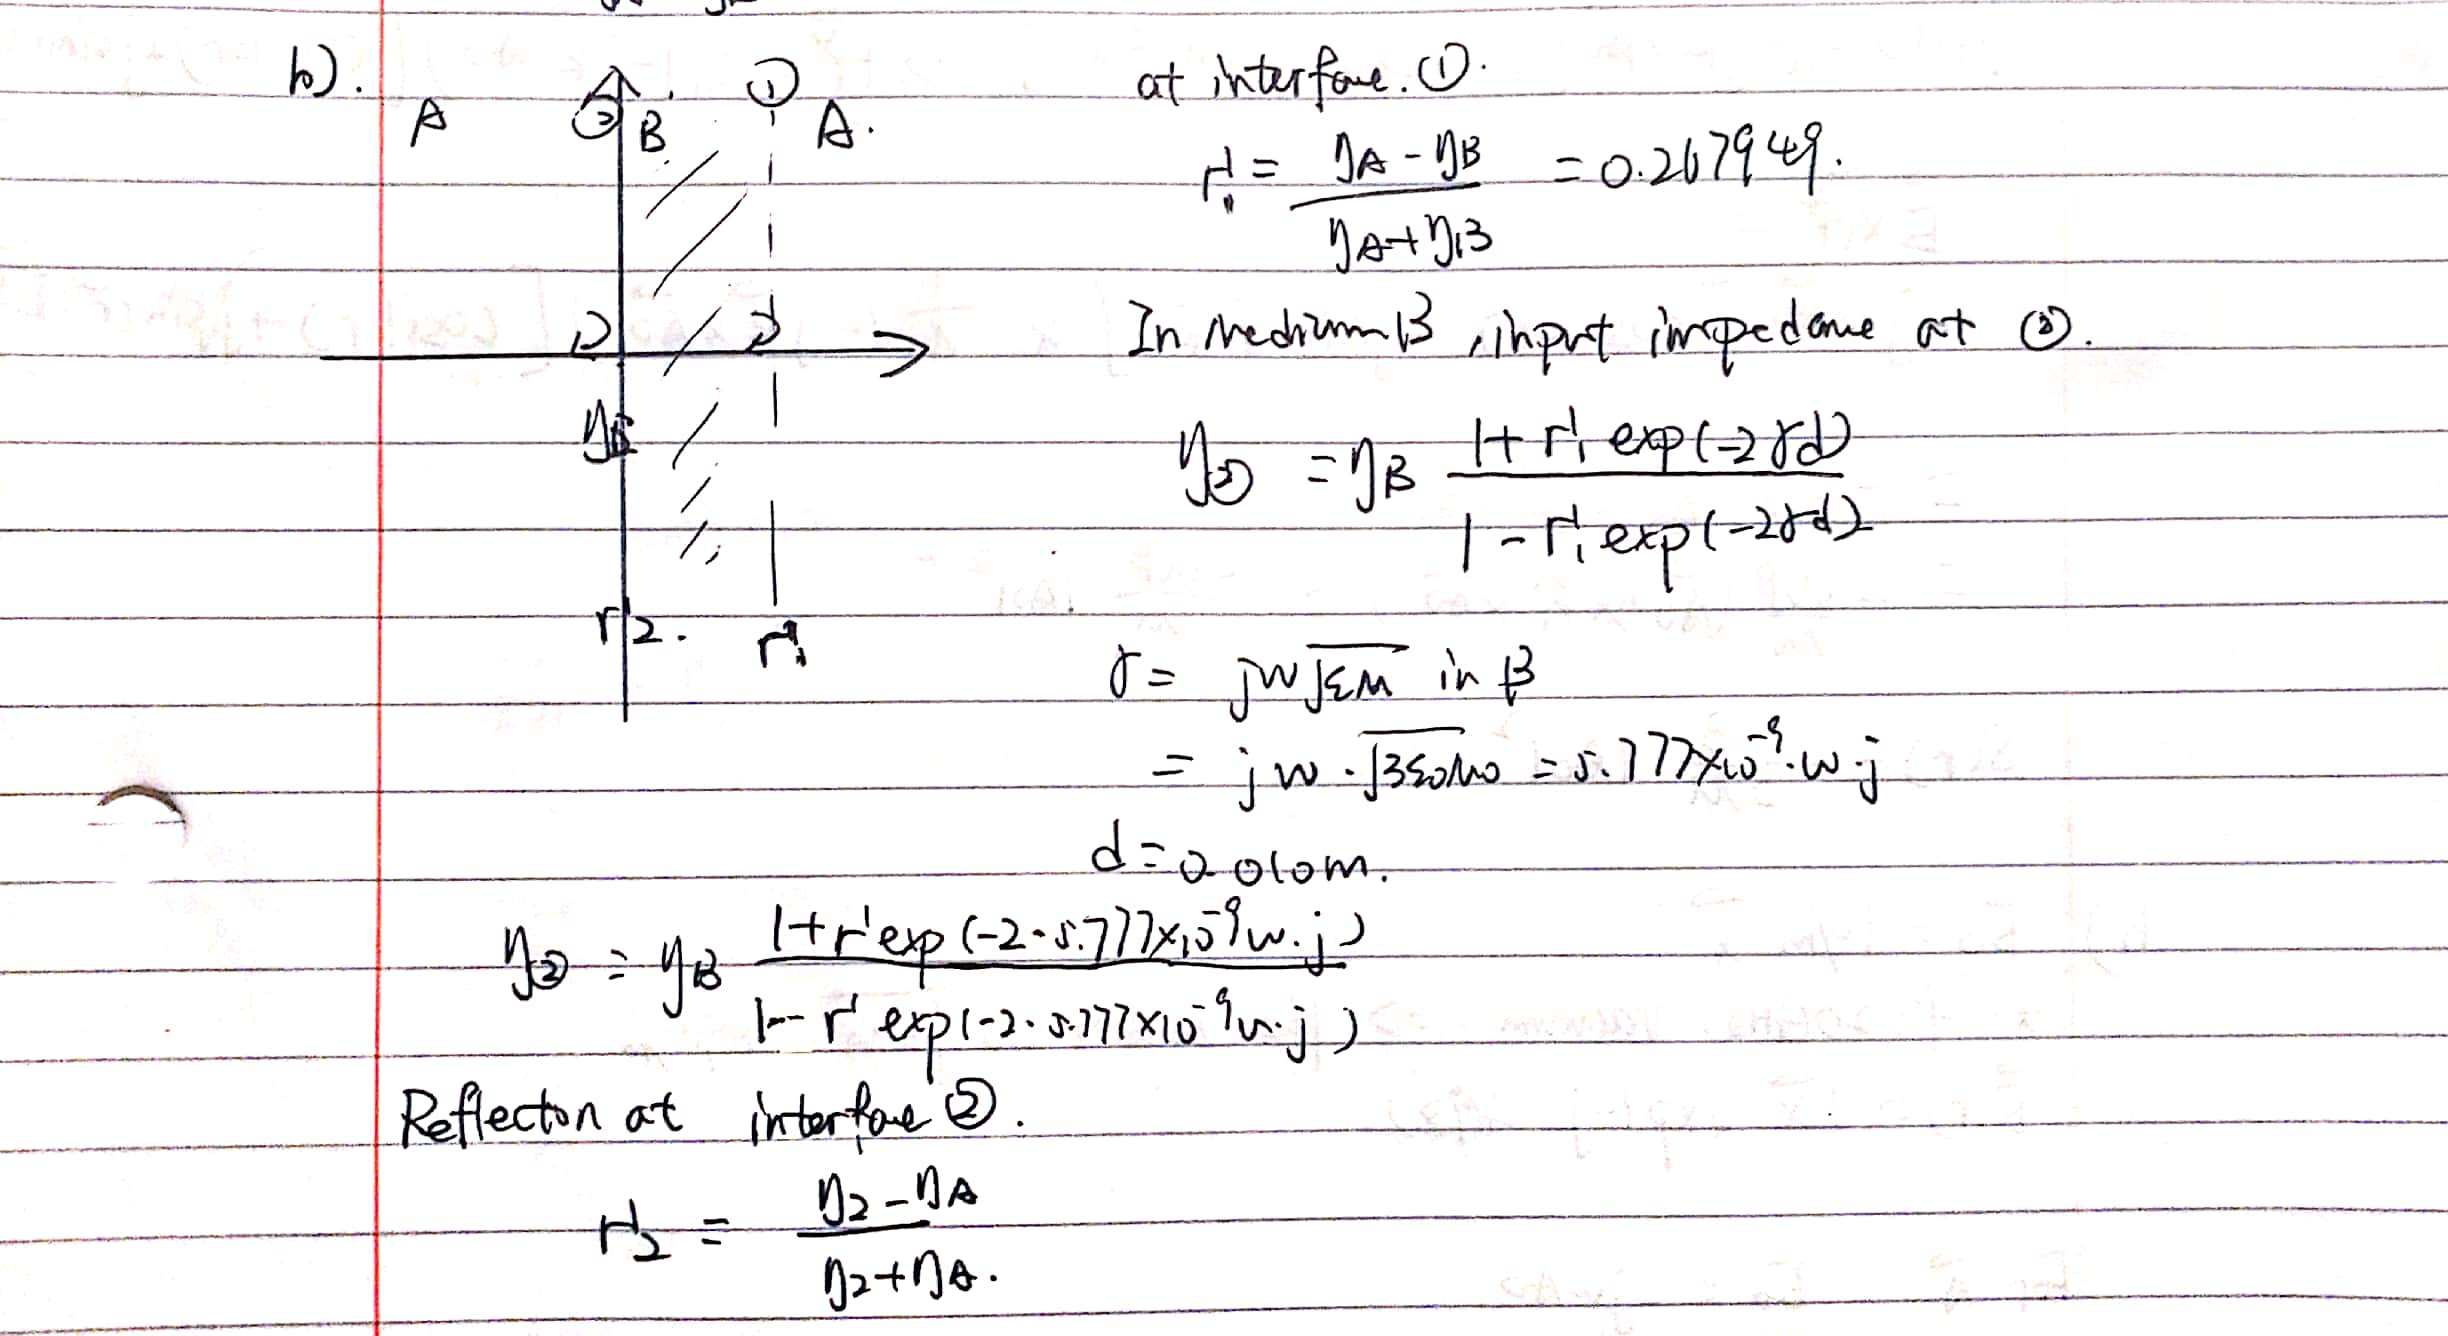 b).
A ② B ① A.
0 d
η_B
Γ2. Γ1
at interface. ①.
Γ1 = (η_A - η_B) / (η_A + η_B) = 0.267949.
In medium B, input impedance at ②.
η_② = η_B (1 + Γ1 exp(-2γd)) / (1 - Γ1 exp(-2γd))
γ = jw√εμ in B
= jw·√3ε0μ0 = 5.777×10^-9·w·j
d = 0.010m.
η_② = η_B (1 + Γ exp(-2·5.777×10^-9 w·j)) / (1 - Γ exp(-2·5.777×10^-9 w·j))
Reflecton at interface ②.
Γ2 = (η2 - η_A) / (η2 + η_A).